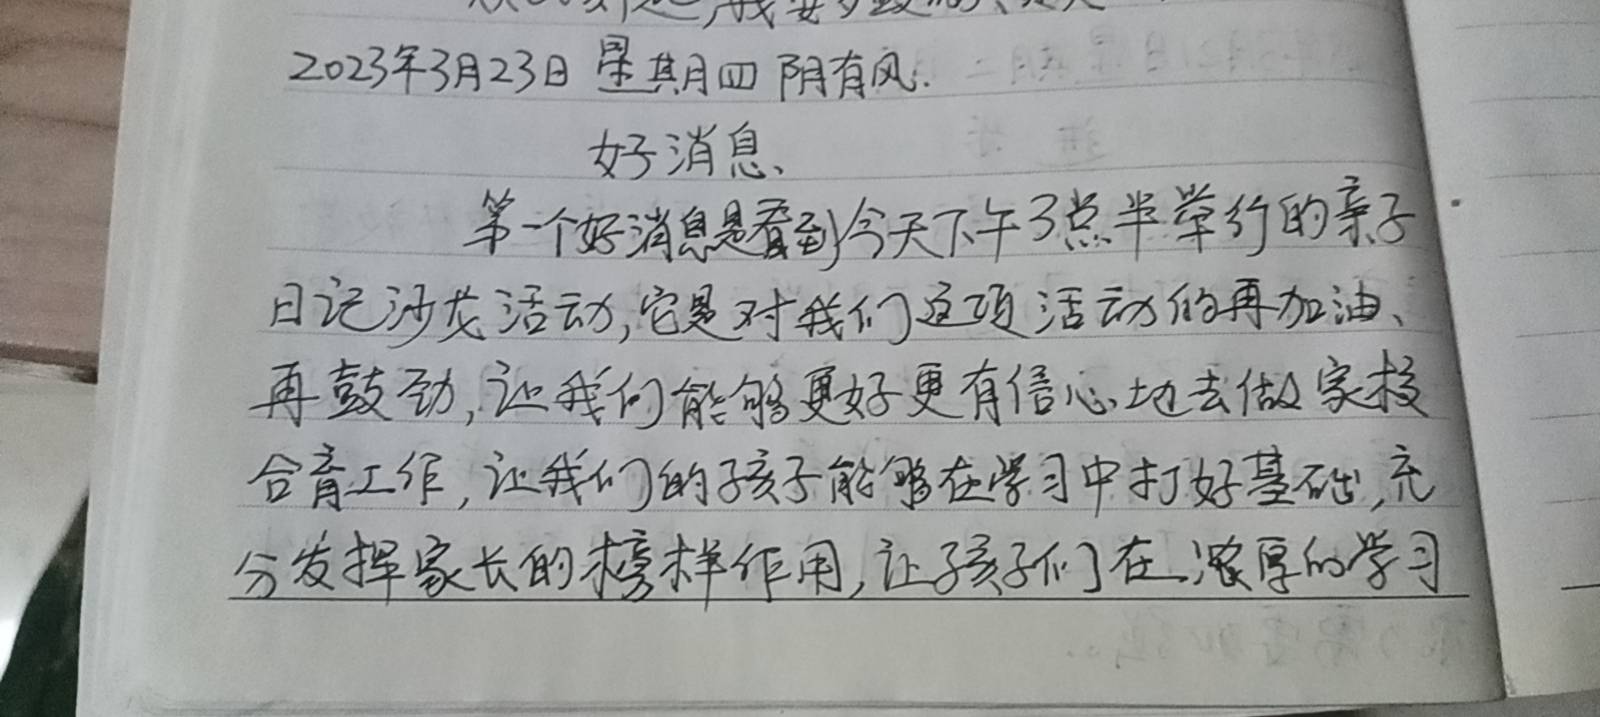 2023年3月23日 星期四 阴有风.
好消息、
第一个好消息是看到今天下午3点半举行的亲子
日记沙龙活动,它是对我们这项活动的再加油、
再鼓劲,让我们能够更好更有信心地去做家校
合育工作,让我们的孩子能够在学习中打好基础,充
分发挥家长的榜样作用,让孩子们在浓厚的学习